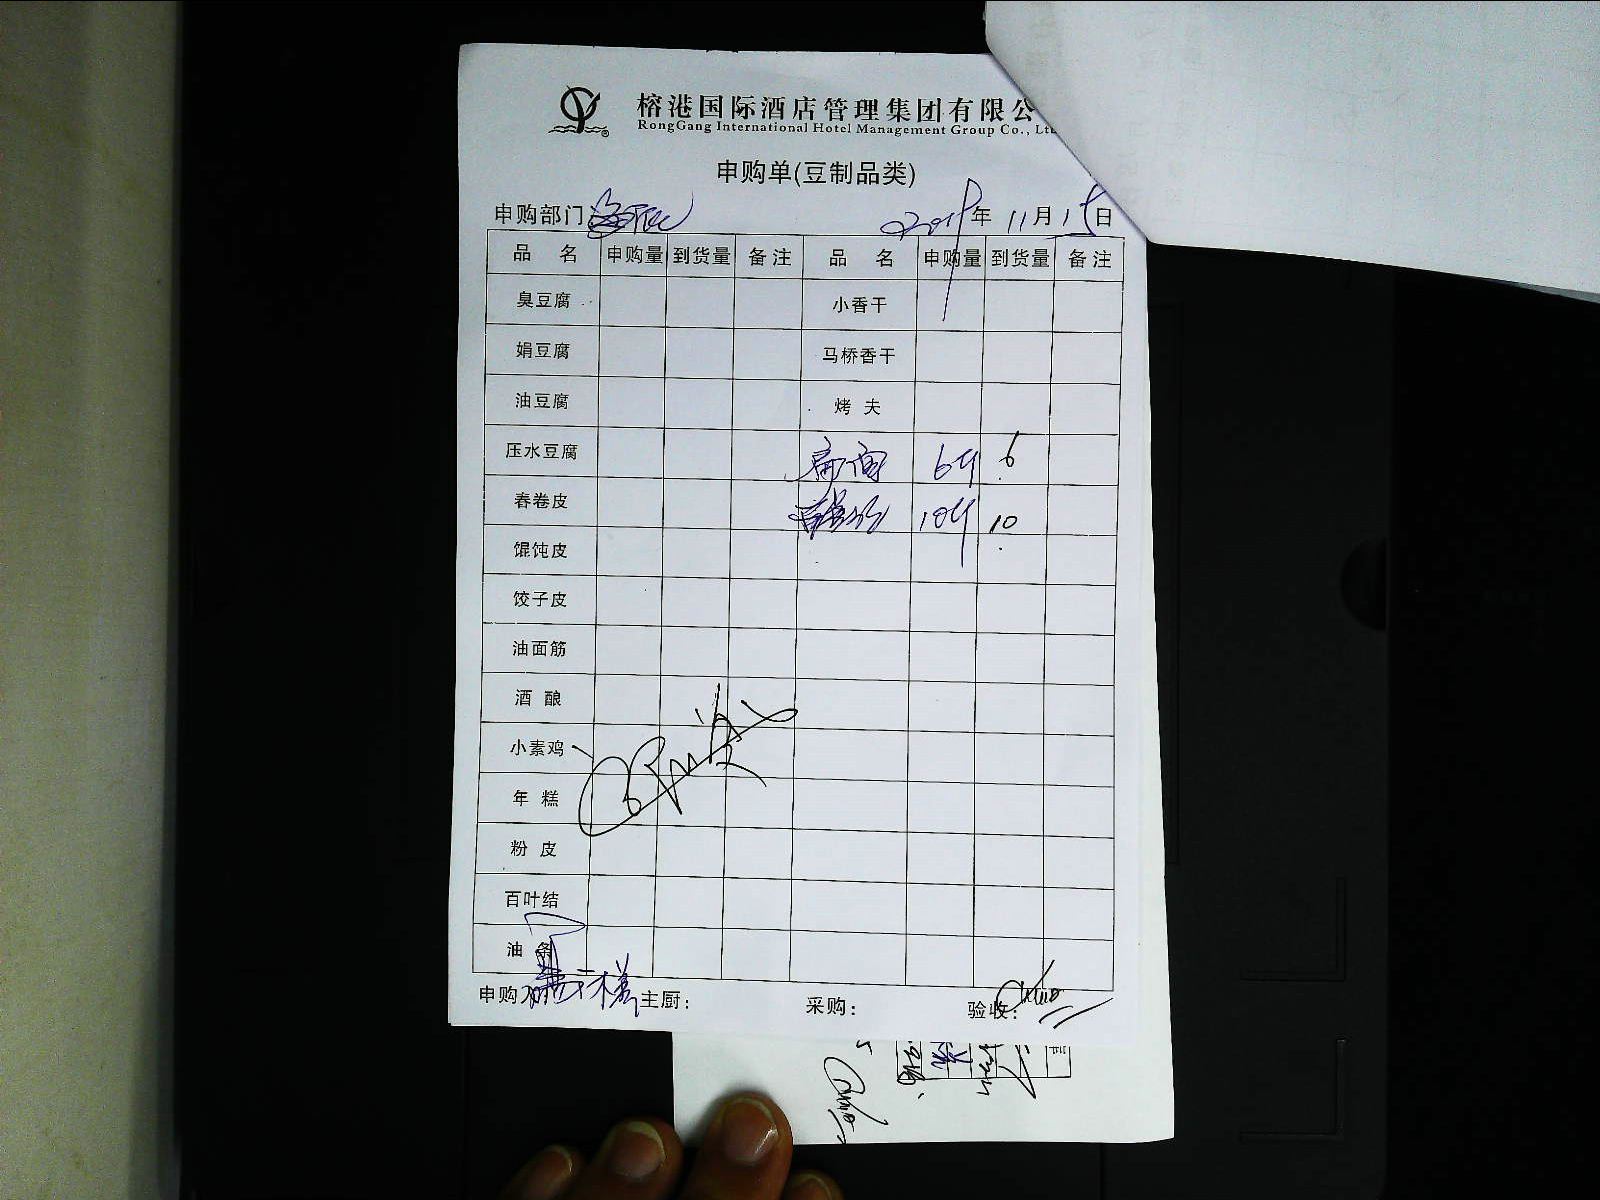 榕港国际酒店管理集团有限公
RongGang International Hotel Management Group Co., Lt
申购单(豆制品类)
申购部门: 年 11月15日
品 名 申购量 到货量 备注 品 名 申购量 到货量 备注
臭豆腐 小香干
娟豆腐 马桥香干
油豆腐 烤 夫
压水豆腐 6斤 6
春卷皮 10斤 10
馄饨皮
饺子皮
油面筋
酒 酿
小素鸡
年 糕
粉 皮
百叶结
油 条
申购人 主厨: 采购: 验收: